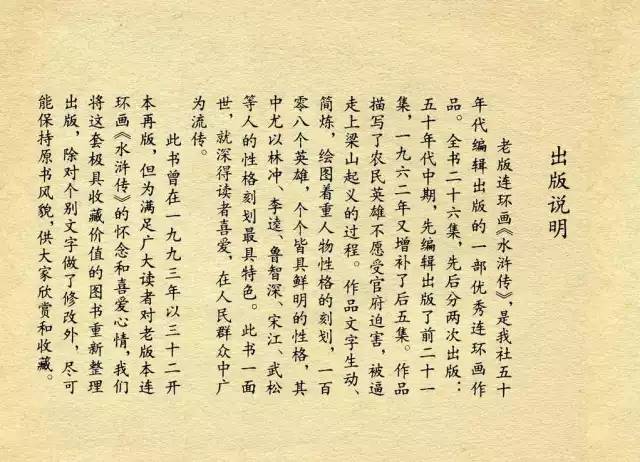 出版说明
老版连环画《水浒传》，是我社五十
年代编辑出版的一部优秀连环画作
品。全书二十六集，先后分两次出版：
五十年代中期，先编辑出版了前二十一
集，一九六二年又增补了后五集。作品
描写了农民英雄不愿受官府迫害，被逼
走上梁山起义的过程。作品文字生动、
简炼，绘图着重人物性格的刻划，一百
零八个英雄，个个皆具鲜明的性格，其
中尤以林冲、李逵、鲁智深、宋江、武松
等人的性格刻划最具特色。此书一面
世，就深得读者喜爱，在人民群众中广
为流传。
此书曾在一九九三年以三十二开
本再版，但为满足广大读者对老版本连
环画《水浒传》的怀念和喜爱心情，我们
将这套极具收藏价值的图书重新整理
出版，除对个别文字做了修改外，尽可
能保持原书风貌，供大家欣赏和收藏。